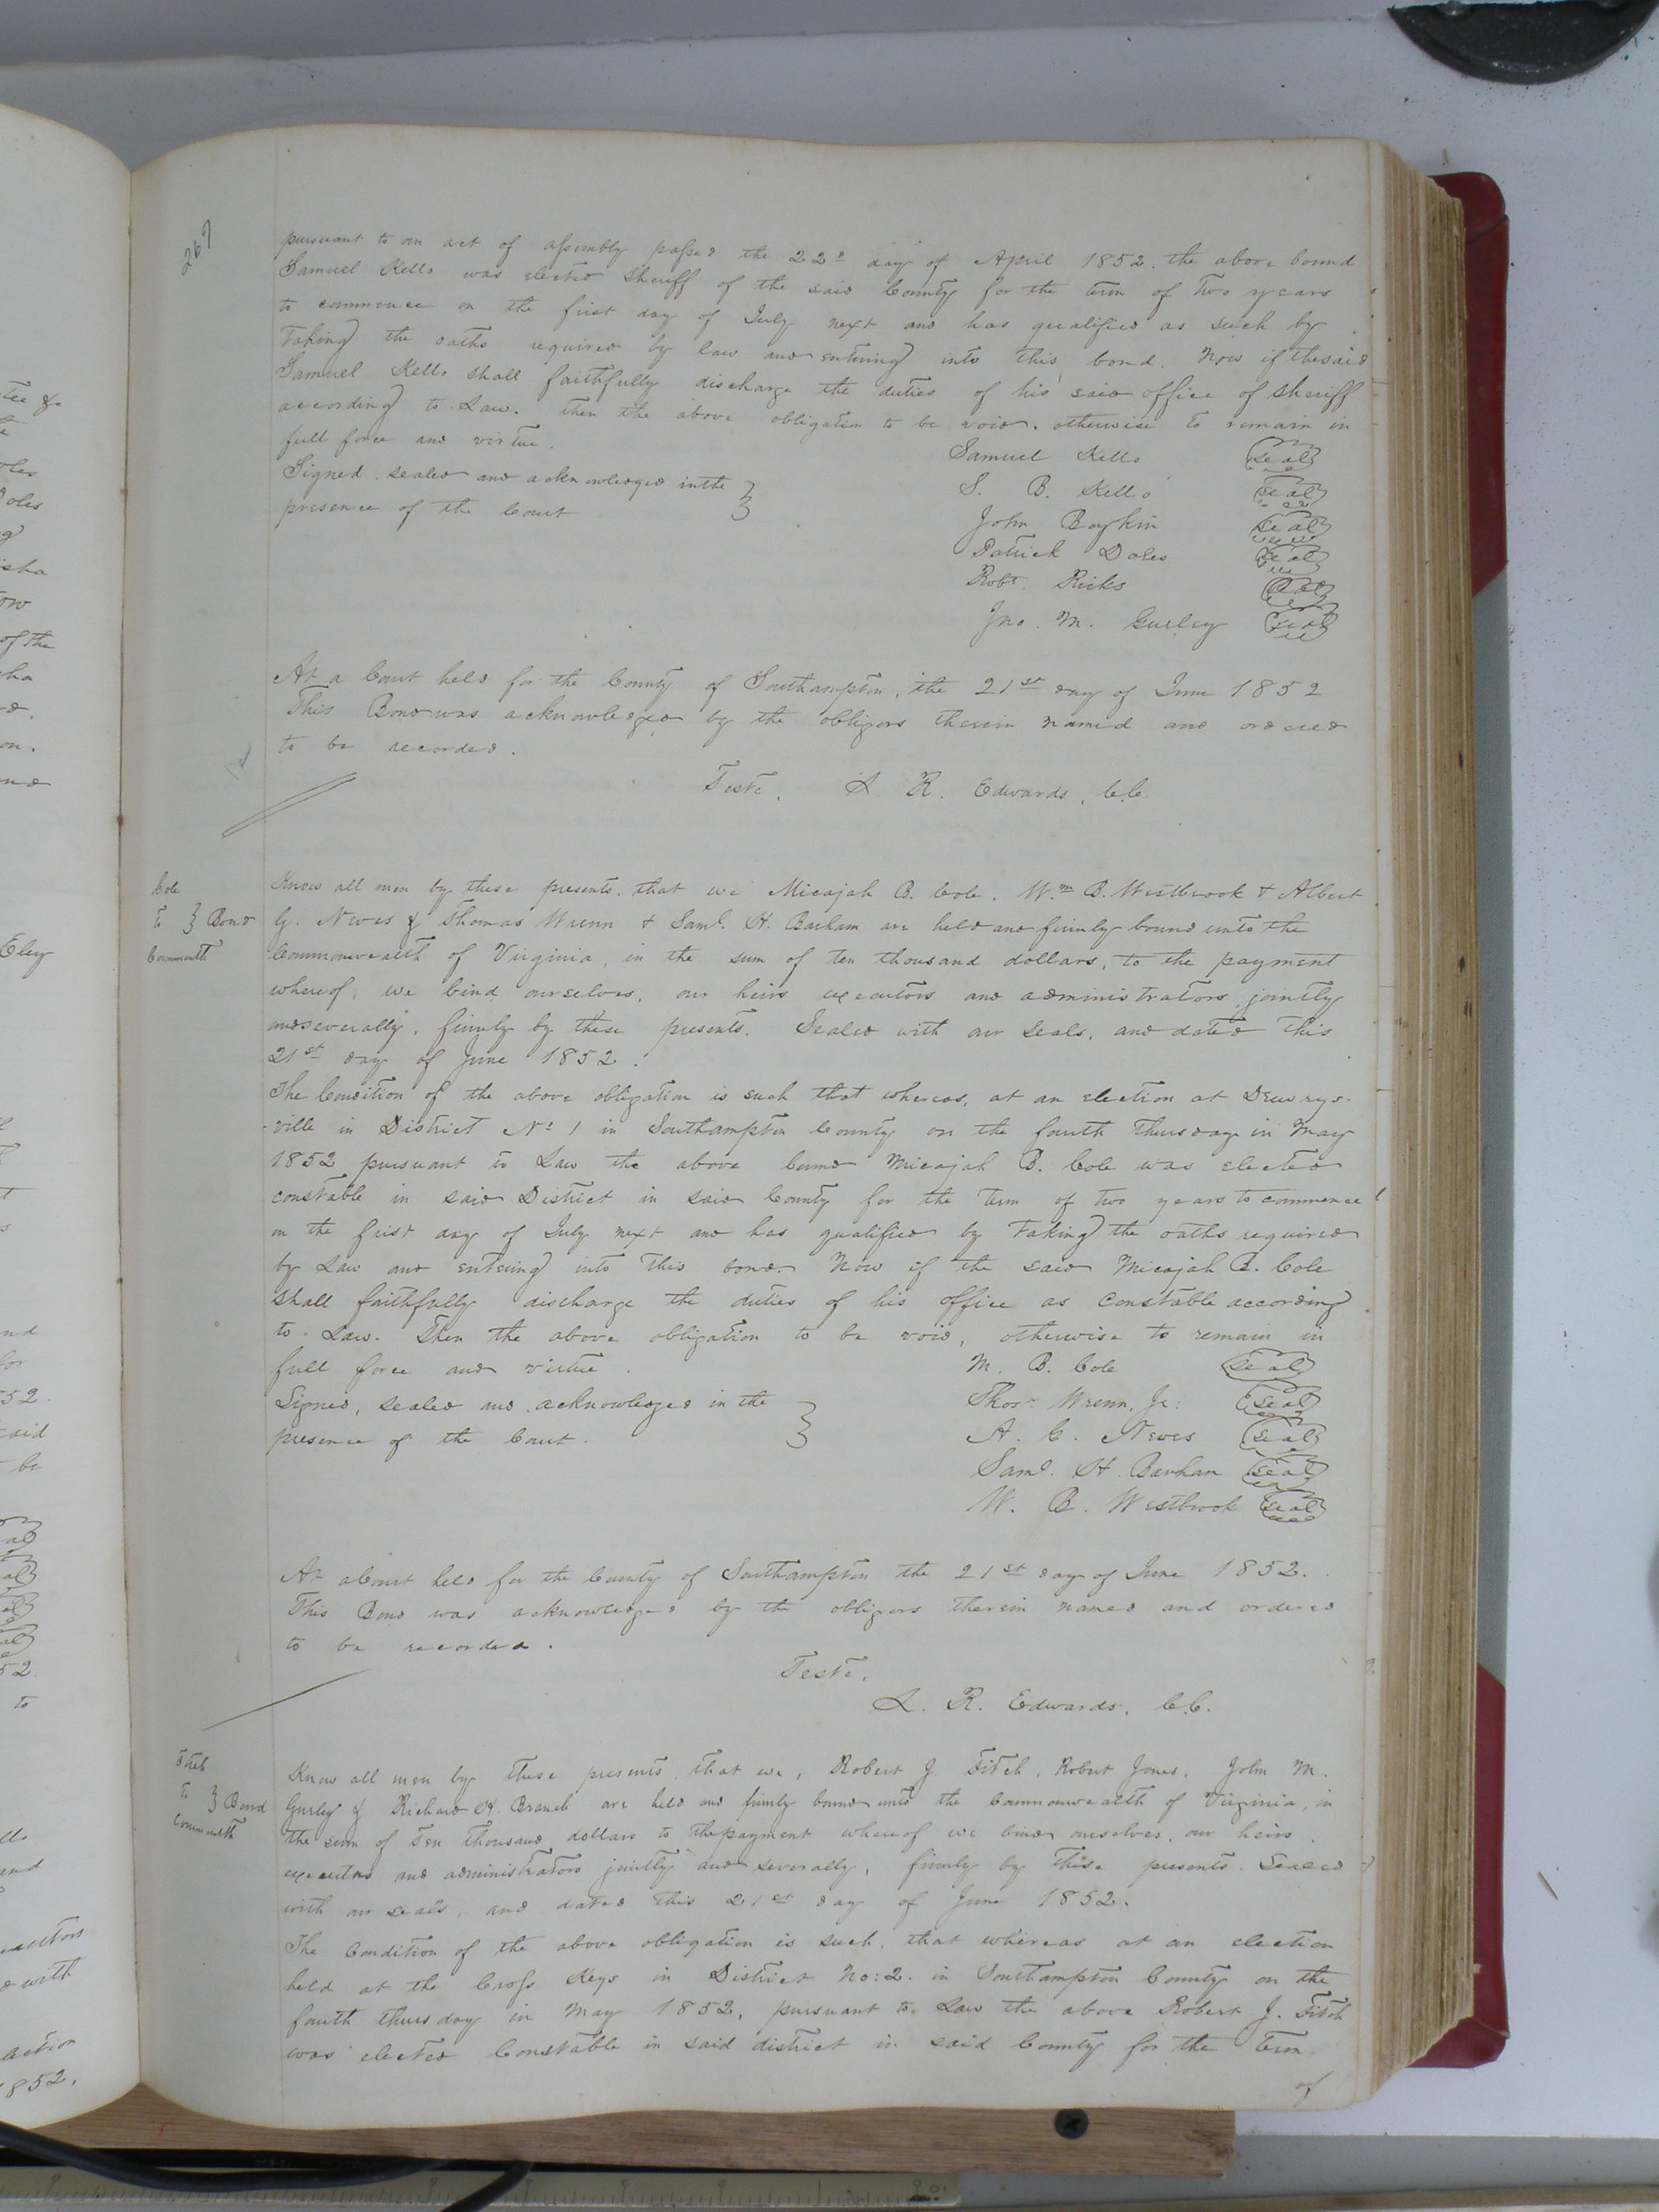 267
pursuant to an act of assembly passed the 22d day of April 1852. the above bound
Samuel Kello was elected Sheriff of the said County for the term of Two years
to commence on the first day of July next and has qualified as such by
Taking the oaths required by law and entering into this bond. Now if the said
Samuel Kello shall faithfully discharge the duties of his said office of Sheriff
according to Law. Then the above obligation to be void. otherwise to remain in
full force and virtue.
Samuel Kello seal
Signed sealed and acknowledged in the
presence of the Court
S. B. Kello seal
John Boykin seal
Patrick Doles seal
Robt. Ricks seal
Jno. M. Gurley seal
At a Court held for the County of Southampton, the 21st day of June 1852
This Bond was acknowledged by the obligors therein named and ordered
to be recorded.
Teste, L. R. Edwards, C.C.
Cole
to } Bond
Commonth
Know all men by these presents, that we Micajah B. Cole, Wm B. Westbrook & Albert
G. Neves & Thomas Wrenn & Saml. H. Barham are held and firmly bound unto the
Commonwealth of Virginia, in the sum of ten thousand dollars, to the payment
whereof, we bind ourselves, our heirs executors and administrators, jointly
and severally, firmly by these presents. Sealed with our seals, and dated This
21st day of June 1852.
The Condition of the above obligation is such that whereas, at an election at Drewrys-
-ville in District No 1 in Southampton County on the fourth Thursday in May
1852 pursuant to Law the above bound Micajah B. Cole was elected
constable in said District in said County for the Term of two years to commence
on the first day of July next and has qualified by Taking the oaths required
by Law and entering into this bond. Now if the said Micajah B. Cole
shall faithfully discharge the duties of his office as Constable according
to Law. Then the above obligation to be void, otherwise to remain in
full force and virtue.
M. B. Cole seal
Signed, sealed and acknowledged in the
presence of the Court.
Thos. Wrenn, Jr: seal
A. G. Neves seal
Saml. H. Barham seal
W. B. Westbrook seal
At a Court held for the County of Southampton the 21st day of June 1852.
This Bond was acknowledged by the obligors therein named and ordered
to be recorded.
Teste,
L. R. Edwards, C.C.
Fitch
to } Bond
Commonth
Know all men by these presents that we, Robert J Fitch, Robert Jones, John M.
Gurley & Richard H. Branch are held and firmly bound unto the Commonwealth of Virginia, in
the sum of Ten Thousand dollars to the payment whereof we bind ourselves, our heirs,
executors and administrators jointly and severally, firmly by these presents. Sealed
with our seals, and dated this 21st day of June 1852.
The Condition of the above obligation is such, that whereas at an election
held at the Cross Keys in District No: 2. in Southampton County on the
fourth thursday in May 1852, pursuant to Law the above Robert J. Fitch
was elected Constable in said district in said County for the Term
of